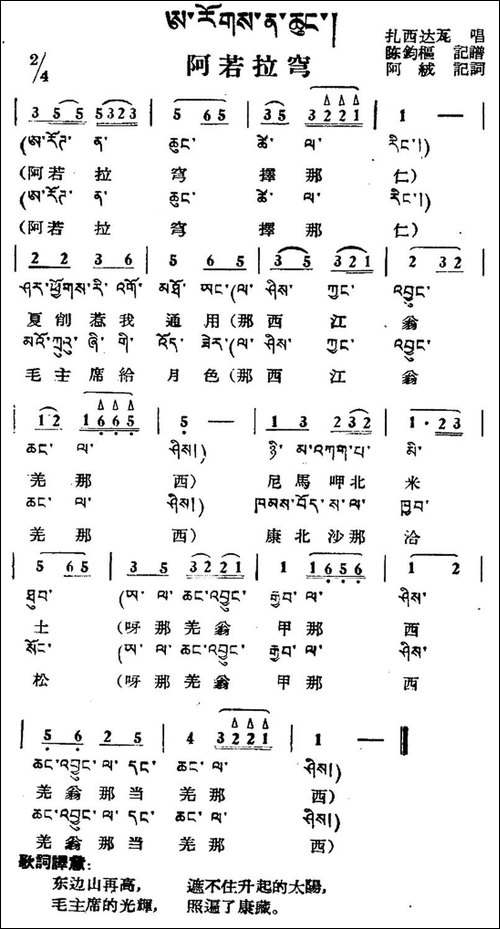 ཨ་རོགས་ན་ཆུང་།
阿若拉穹
扎西达瓦 唱
陈鈞樞 記譜
阿絨 記詞
2/4
3 5 5 5323 | 5 65 | 35 3221 | 1 — |
(ཨ་རོཊ་ ན་ ཆུང་ ཚེ་ ལ་ རིང་།)
(阿若 拉 穹 擇 那 仁)
(ཨ་རོཊ་ ན་ ཆུང་ ཚེ་ ལ་ རིང་།)
(阿若 拉 穹 擇 那 仁)
| 2 2 3 6 | 5 6 5 | 35 321 | 2 32 |
ཤར་ཕྱོགས་རི་འགོ་ མཐོ་ ཡང་(ལ་ ཤིས་ ཀྱང་ འབྱུང་
夏創惹我 通用(那西 江 翁
མའོ་ཀྲུའུ་ཞི་གི་ འོད་ ཟེར་(ལ་ ཤིས་ ཀྱང་ འབྱུང་
毛主席給 月色(那西 江 翁
| 12 1665 | 5 — | 1 3 232 | 1·23 |
ཆང་ ལ་ ཤིས།) ཉི་ མ་འགག་པ་ མི་
羌 那 西) 尼馬呷北 米
ཆང་ ལ་ ཤིས།) ཁམས་བོད་ས་ལ་ ཁྱབ་
羌 那 西) 康北沙那 洽
| 5 65 | 3 5 3221 | 1 1656 | 1 2 |
ཐུབ་ (ཨ་ ལ་ ཆང་འབྱུང་ རྒྱབ་ ལ་ ཤིས་
土 (呀那羌翁 甲那 西
སོང་ (ཨ་ ལ་ ཆང་འབྱུང་ རྒྱབ་ ལ་ ཤིས་
松 (呀那羌翁 甲那 西
| 5 6 2 5 | 4 3221 | 1 — ‖
ཆང་འབྱུང་ལ་དང་ ཆང་ ལ་ ཤིས།)
羌翁那当 羌那 西)
ཆང་འབྱུང་ལ་དང་ ཆང་ ལ་ ཤིས།)
羌翁那当 羌那 西)
歌詞譯意:
东边山再高, 遮不住升起的太陽,
毛主席的光輝, 照遍了康藏。